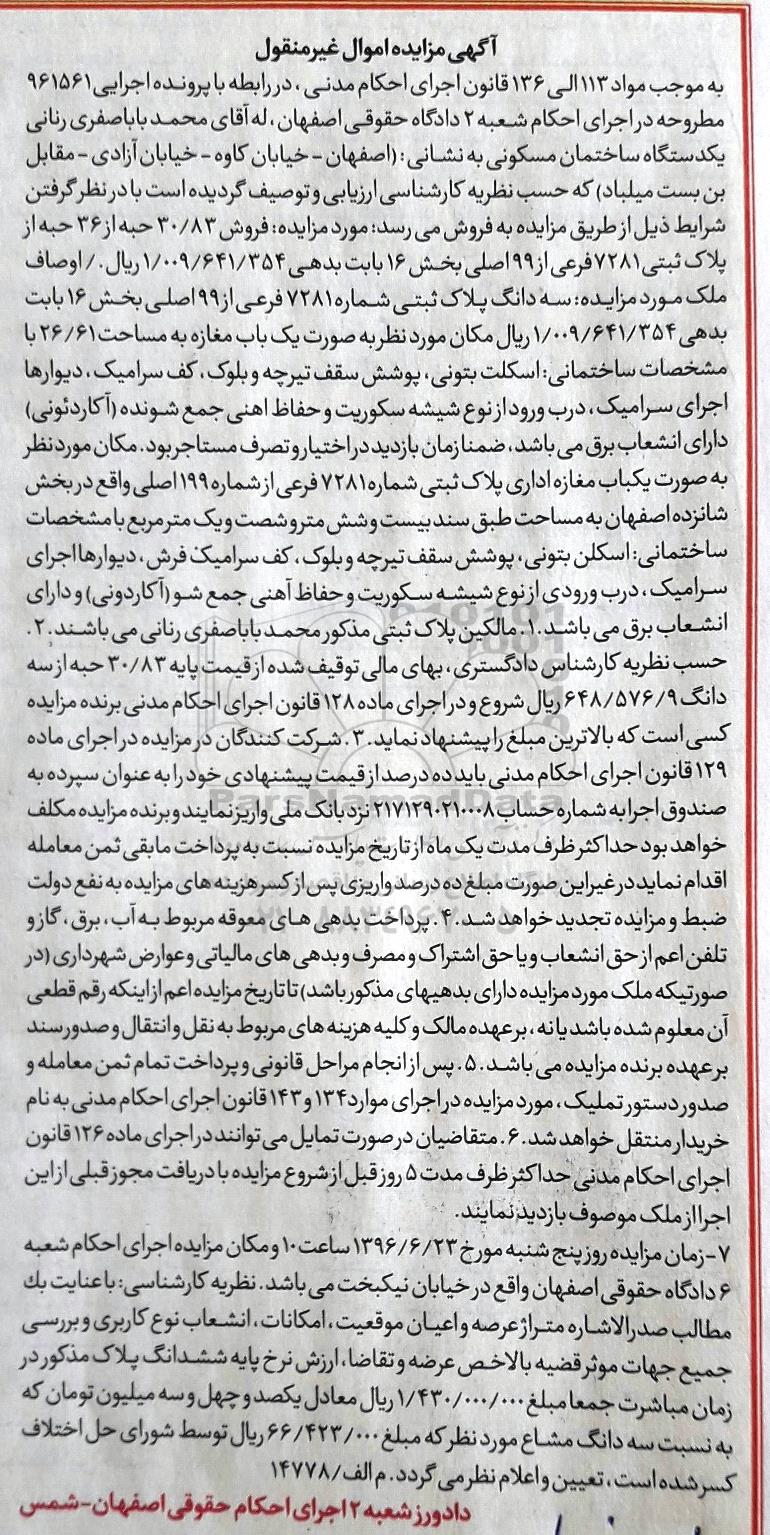 آگهی مزایده اموال غیرمنقول
به موجب مواد ۱۱۳ الی ۱۳۶ قانون اجرای احکام مدنی، در رابطه با پرونده اجرایی ۹۶۱۵۶۱
مطروحه در اجرای احکام شعبه ۲ دادگاه حقوقی اصفهان، له آقای محمد باباصفری رنانی
یکدستگاه ساختمان مسکونی به نشانی: (اصفهان - خیابان کاوه - خیابان آزادی - مقابل
بن بست میلباد) که حسب نظریه کارشناسی ارزیابی و توصیف گردیده است با در نظر گرفتن
شرایط ذیل از طریق مزایده به فروش می رسد؛ مورد مزایده: فروش ۳۰/۸۳ حبه از ۳۶ حبه از
پلاک ثبتی ۷۲۸۱ فرعی از ۹۹ اصلی بخش ۱۶ بابت بدهی ۱/۰۰۹/۶۴۱/۳۵۴ ریال. / اوصاف
ملک مورد مزایده: سه دانگ پلاک ثبتی شماره ۷۲۸۱ فرعی از ۹۹ اصلی بخش ۱۶ بابت
بدهی ۱/۰۰۹/۶۴۱/۳۵۴ ریال مکان مورد نظر به صورت یک باب مغازه به مساحت ۲۶/۶۱ با
مشخصات ساختمانی: اسکلت بتونی، پوشش سقف تیرچه و بلوک، کف سرامیک، دیوارها
اجرای سرامیک، درب ورود از نوع شیشه سکوریت و حفاظ اهنی جمع شونده (آکاردئونی)
دارای انشعاب برق می باشد، ضمنا زمان بازدید در اختیار و تصرف مستاجر بود. مکان مورد نظر
به صورت یکباب مغازه اداری پلاک ثبتی شماره ۷۲۸۱ فرعی از شماره ۱۹۹ اصلی واقع در بخش
شانزده اصفهان به مساحت طبق سند بیست و شش متر و شصت و یک متر مربع با مشخصات
ساختمانی: اسکلن بتونی، پوشش سقف تیرچه و بلوک، کف سرامیک فرش، دیوارها اجرای
سرامیک، درب ورودی از نوع شیشه سکوریت و حفاظ آهنی جمع شو (آکاردونی) و دارای
انشعاب برق می باشد. ۱. مالکین پلاک ثبتی مذکور محمد باباصفری رنانی می باشند. ۲.
حسب نظریه کارشناس دادگستری، بهای مالی توقیف شده از قیمت پایه ۳۰/۸۳ حبه از سه
دانگ ۶۴۸/۵۷۶/۹ ریال شروع و در اجرای ماده ۱۲۸ قانون اجرای احکام مدنی برنده مزایده
کسی است که بالاترین مبلغ را پیشنهاد نماید. ۳. شرکت کنندگان در مزایده در اجرای ماده
۱۲۹ قانون اجرای احکام مدنی باید ده درصد از قیمت پیشنهادی خود را به عنوان سپرده به
صندوق اجرا به شماره حساب ۲۱۷۱۲۹۰۲۱۰۰۰۸ نزد بانک ملی واریز نمایند و برنده مزایده مکلف
خواهد بود حداکثر ظرف مدت یک ماه از تاریخ مزایده نسبت به پرداخت مابقی ثمن معامله
اقدام نماید در غیر این صورت مبلغ ده درصد واریزی پس از کسر هزینه های مزایده به نفع دولت
ضبط و مزایده تجدید خواهد شد. ۴. پرداخت بدهی های معوقه مربوط به آب، برق، گاز و
تلفن اعم از حق انشعاب و یا حق اشتراک و مصرف و بدهی های مالیاتی و عوارض شهرداری (در
صورتیکه ملک مورد مزایده دارای بدهیهای مذکور باشد) تا تاریخ مزایده اعم از اینکه رقم قطعی
آن معلوم شده باشد یا نه، بر عهده مالک و کلیه هزینه های مربوط به نقل و انتقال و صدور سند
بر عهده برنده مزایده می باشد. ۵. پس از انجام مراحل قانونی و پرداخت تمام ثمن معامله و
صدور دستور تملیک، مورد مزایده در اجرای موارد ۱۳۴ و ۱۴۳ قانون اجرای احکام مدنی به نام
خریدار منتقل خواهد شد. ۶. متقاضیان در صورت تمایل می توانند در اجرای ماده ۱۲۶ قانون
اجرای احکام مدنی حداکثر ظرف مدت ۵ روز قبل از شروع مزایده با دریافت مجوز قبلی از این
اجرا از ملک موصوف بازدید نمایند.
۷- زمان مزایده روز پنج شنبه مورخ ۱۳۹۶/۶/۲۳ ساعت ۱۰ و مکان مزایده اجرای احکام شعبه
۶ دادگاه حقوقی اصفهان واقع در خیابان نیکبخت می باشد. نظریه کارشناسی: با عنایت بك
مطالب صدرالاشاره متراژ عرصه و اعیان موقعیت، امکانات، انشعاب نوع کاربری و بررسی
جمیع جهات موثر قضیه بالاخص عرضه و تقاضا، ارزش نرخ پایه ششدانگ پلاک مذکور در
زمان مباشرت جمعا مبلغ ۱/۴۳۰/۰۰۰/۰۰۰ ریال معادل یکصد و چهل و سه میلیون تومان که
به نسبت سه دانگ مشاع مورد نظر که مبلغ ۶۶/۴۲۳/۰۰۰ ریال توسط شورای حل اختلاف
کسر شده است، تعیین و اعلام نظر می گردد. م الف/ ۱۴۷۷۸
دادورز شعبه ۲ اجرای احکام حقوقی اصفهان - شمس
ParsNamadData